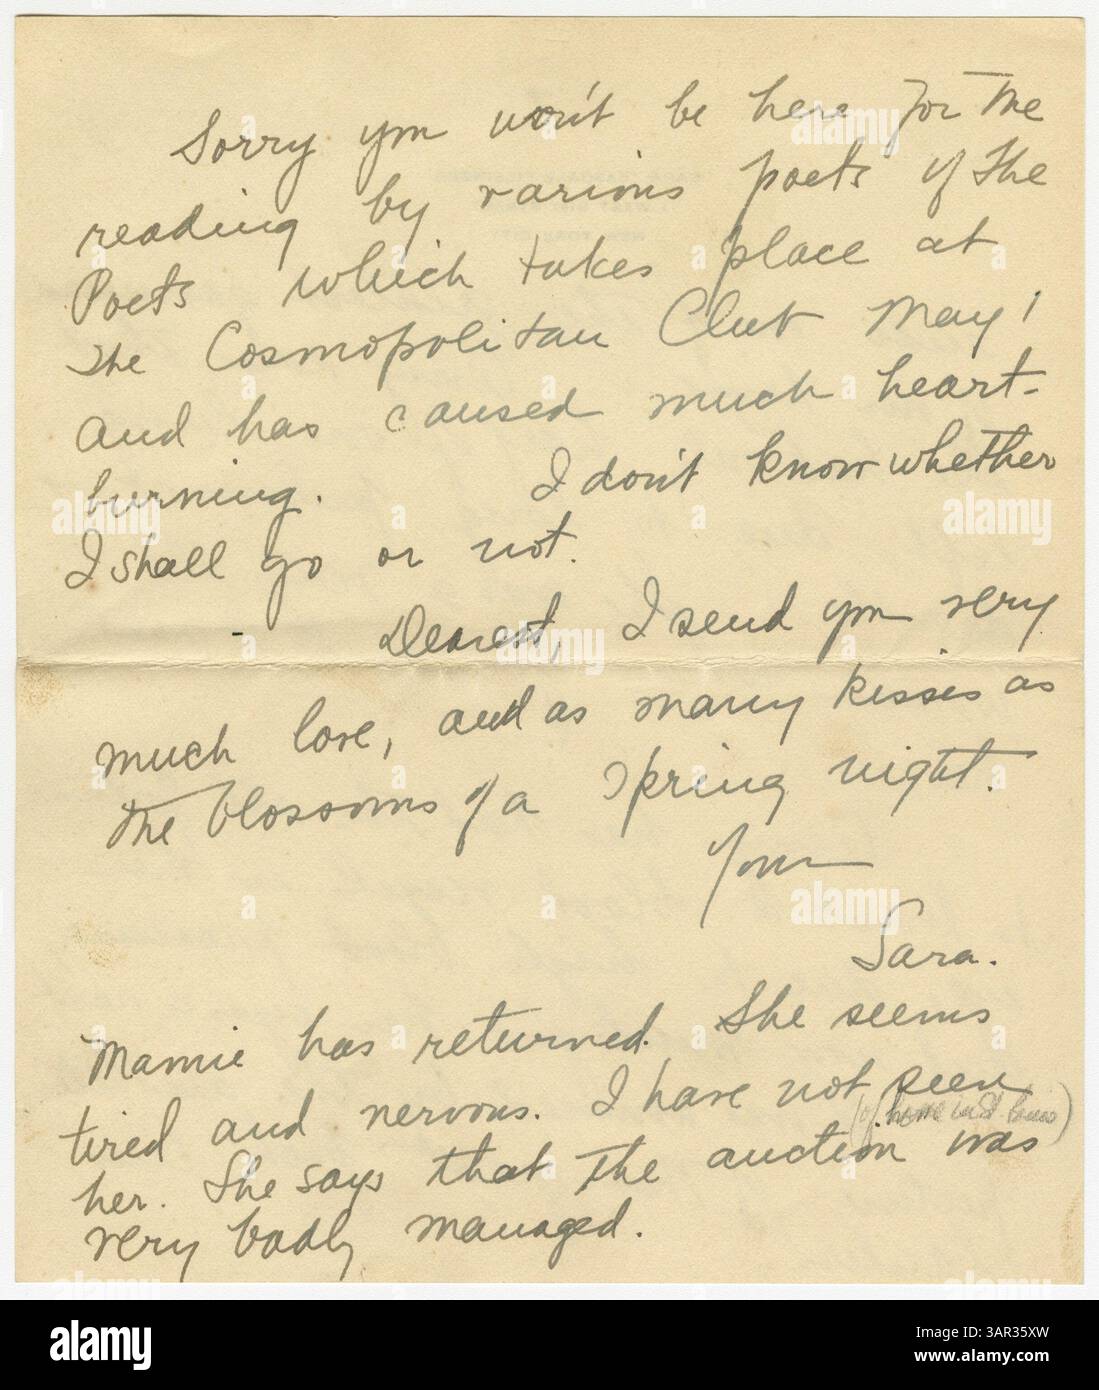 Sorry you won't be here for the
reading by various poets of the
Poets which takes place at
the Cosmopolitan Club May 1
and has caused much heart-
burning. I don't know whether
I shall go or not.
Dearest, I send you very
much love, and as many kisses as
the blossoms of a Spring night.
Your
Sara.
Mamie has returned. She seems
tired and nervous. I have not seen
(of home in St Louis)
her. She says that the auction was
very badly managed.
alamy
Image ID: 3AR35XW
www.alamy.com